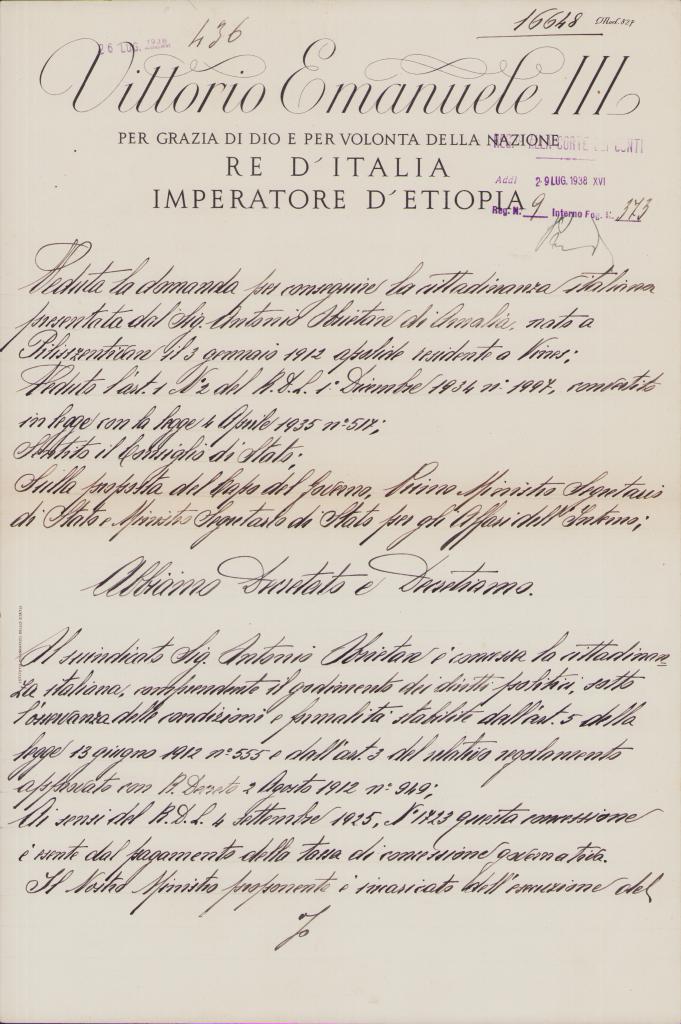 16648 Mod. 827
26 LUG. 1938 436
Vittorio Emanuele III
PER GRAZIA DI DIO E PER VOLONTA DELLA NAZIONE
REG. ALLA CORTE DEI CONTI
RE D'ITALIA
Addì 29 LUG. 1938 XVI
IMPERATORE D'ETIOPIA
Reg. N. 9 Interno Fog. N. 373
Veduta la domanda per conseguire la cittadinanza italiana
presentata dal Sig. Antonio Obrietan di Amalia, nato a
il 3 gennaio 1912 apolide residente a Vines;
Veduto l'art. 1 N° 2 del R.D.L. 1° Dicembre 1934 n° 1997, convertito
in legge con la legge 4 Aprile 1935 n° 517;
Sentito il Consiglio di Stato;
Sulla proposta del Capo del Governo, Primo Ministro Segretario
di Stato e Ministro Segretario di Stato per gli Affari dell'Interno;
Abbiamo Decretato e Decretiamo.
Al suindicato Sig. Antonio Obrietan è concessa la cittadinan=
za italiana, comprendente il godimento dei diritti politici, sotto
l'osservanza delle condizioni e formalità stabilite dall'art. 5 della
legge 13 giugno 1912 n° 555 e dall'art. 3 del relativo regolamento
approvato con R. Decreto 2 Agosto 1912 n° 949;
Ai sensi del R.D.L. 4 Settembre 1925, N° 1723 questa concessione
è esente dal pagamento della tassa di concessione governativa.
Il Nostro Ministro proponente è incaricato dell'esecuzione del